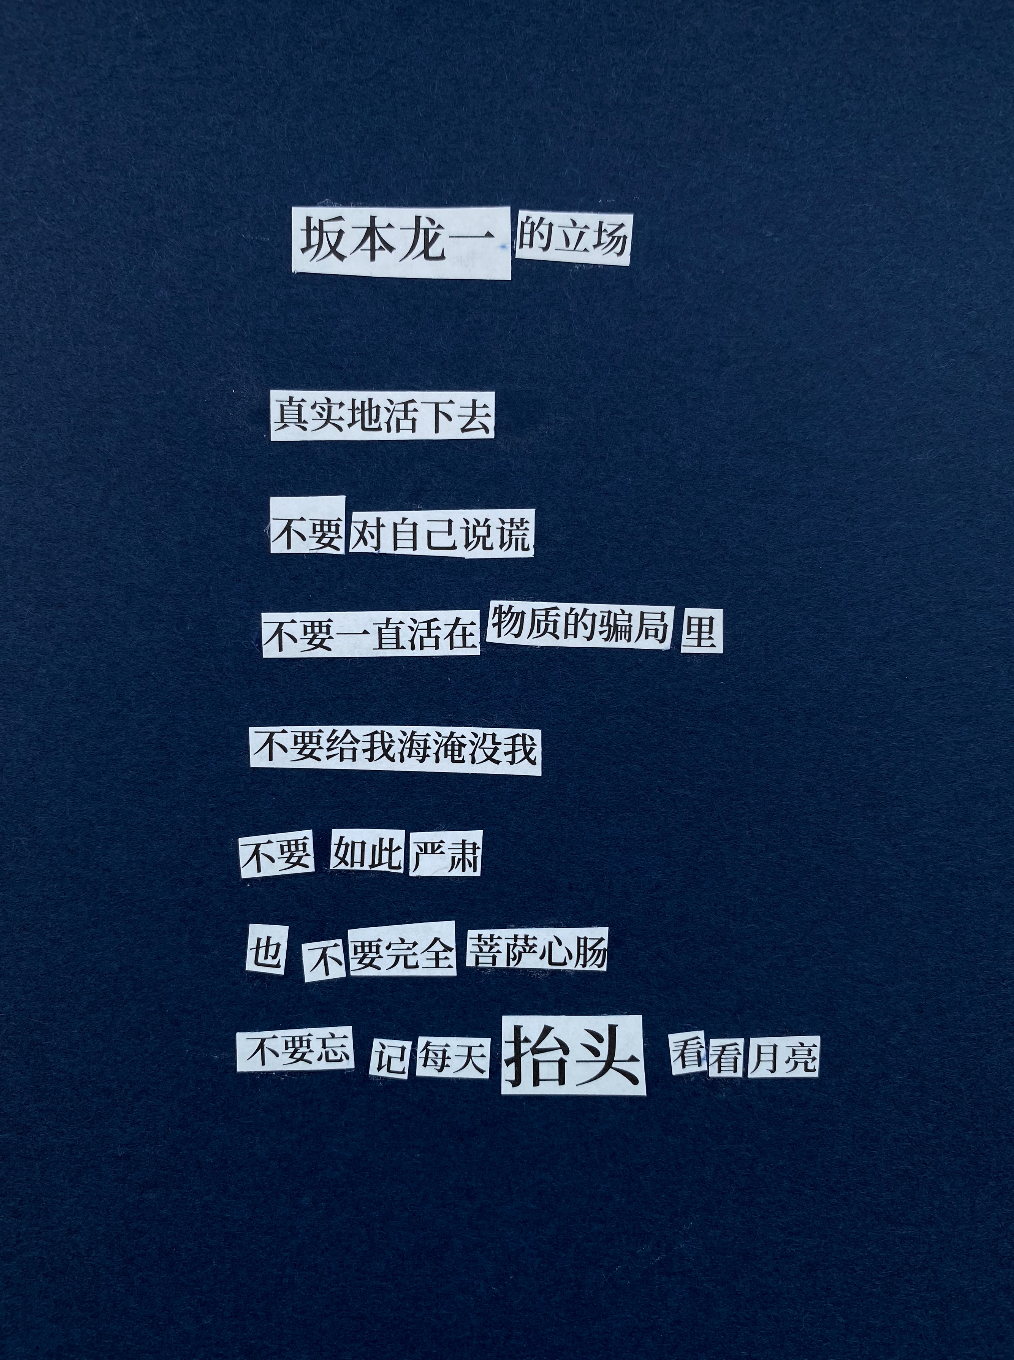 坂本龙一的立场
真实地活下去
不要对自己说谎
不要一直活在物质的骗局里
不要给我海淹没我
不要如此严肃
也不要完全菩萨心肠
不要忘记每天抬头看看月亮